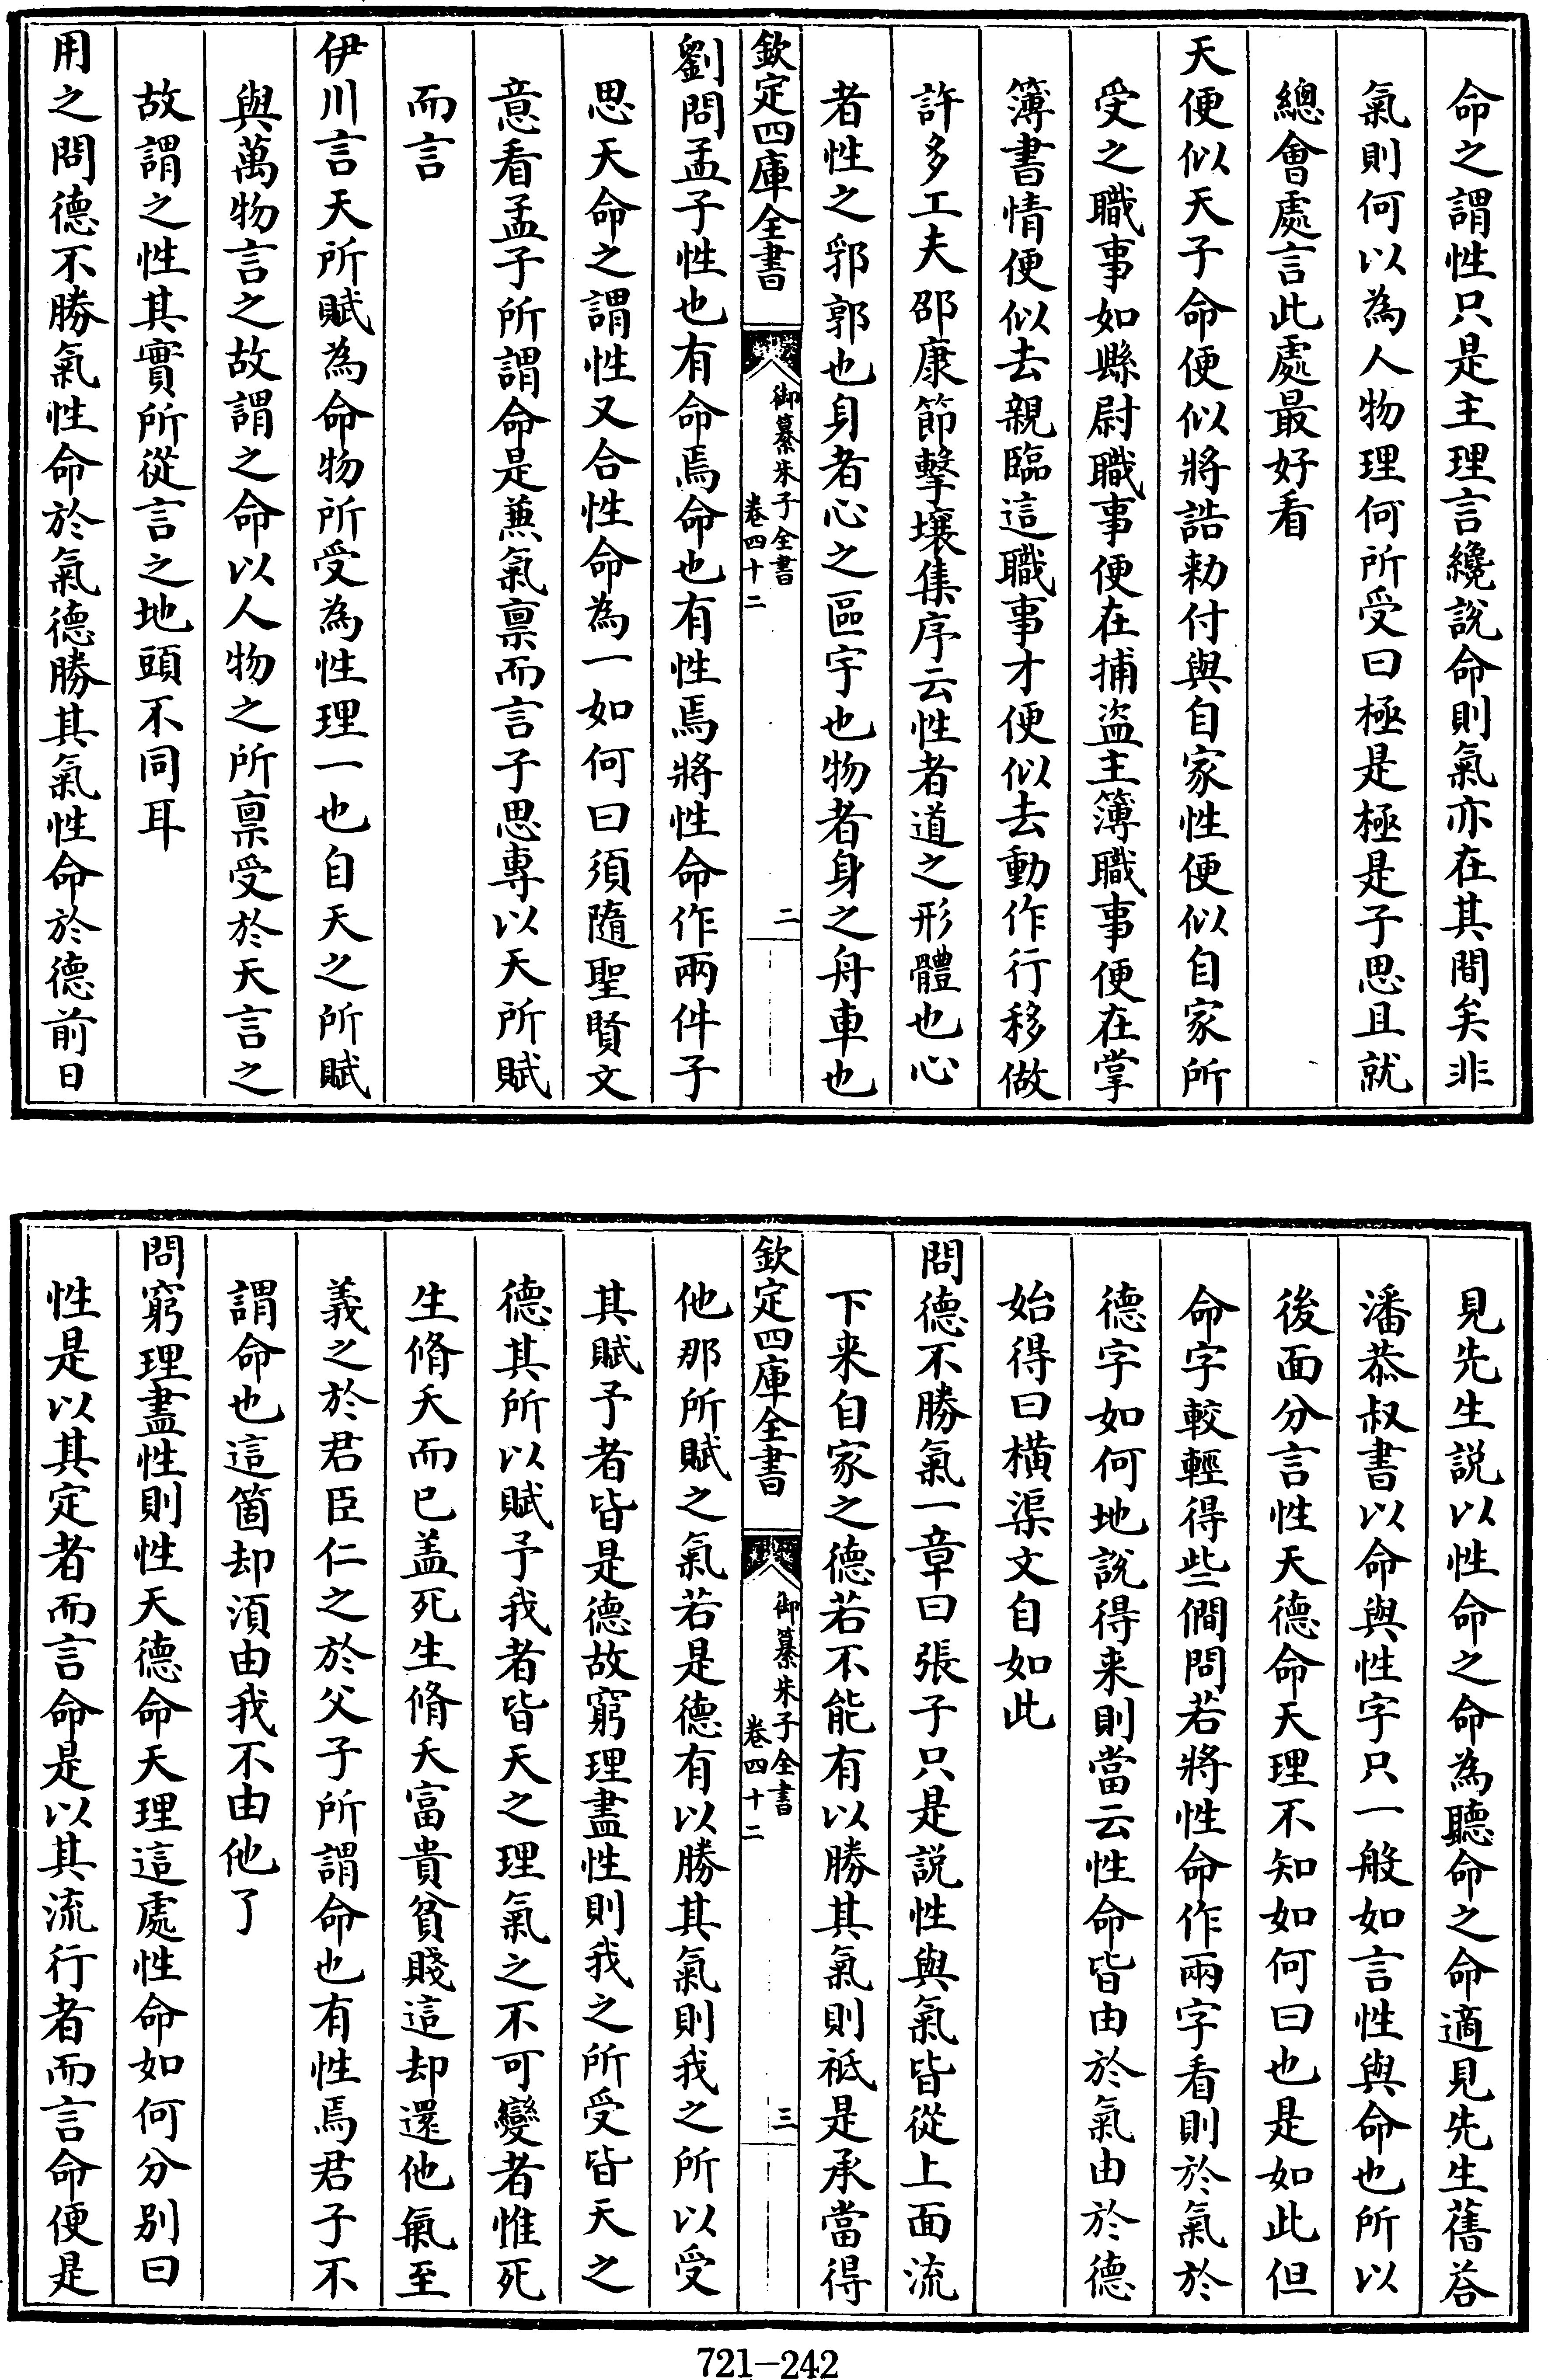 命之謂性只是主理言纔說命則氣亦在其間矣非
氣則何以為人物理何所受曰極是極是子思且就
總會處言此處最好看
天便似天子命便似將誥勅付與自家性便似自家所
受之職事如縣尉職事便在捕盜主簿職事便在掌
簿書情便似去親臨這職事才便似去動作行移做
許多工夫邵康節擊壤集序云性者道之形體也心
者性之郛郭也身者心之區宇也物者身之舟車也
欽定四庫全書
御纂朱子全書
卷四十二
二
劉問孟子性也有命焉命也有性焉將性命作兩件子
思天命之謂性又合性命為一如何曰須隨聖賢文
意看孟子所謂命是兼氣禀而言子思專以天所賦
而言
伊川言天所賦為命物所受為性理一也自天之所賦
與萬物言之故謂之命以人物之所禀受於天言之
故謂之性其實所從言之地頭不同耳
用之問德不勝氣性命於氣德勝其氣性命於德前日
見先生説以性命之命為聽命之命適見先生舊答
潘恭叔書以命與性字只一般如言性與命也所以
後面分言性天德命天理不知如何曰也是如此但
命字較輕得些僩問若將性命作兩字看則於氣於
德字如何地說得来則當云性命皆由於氣由於德
始得曰橫渠文自如此
問德不勝氣一章曰張子只是説性與氣皆從上面流
下来自家之德若不能有以勝其氣則祗是承當得
欽定四庫全書
御纂朱子全書
卷四十二
三
他那所賦之氣若是德有以勝其氣則我之所以受
其賦予者皆是德故窮理盡性則我之所受皆天之
德其所以賦予我者皆天之理氣之不可變者惟死
生脩夭而已盖死生脩夭富貴貧賤這却還他氣至
義之於君臣仁之於父子所謂命也有性焉君子不
謂命也這箇却湏由我不由他了
問窮理盡性則性天德命天理這處性命如何分别曰
性是以其定者而言命是以其流行者而言命便是
721-242